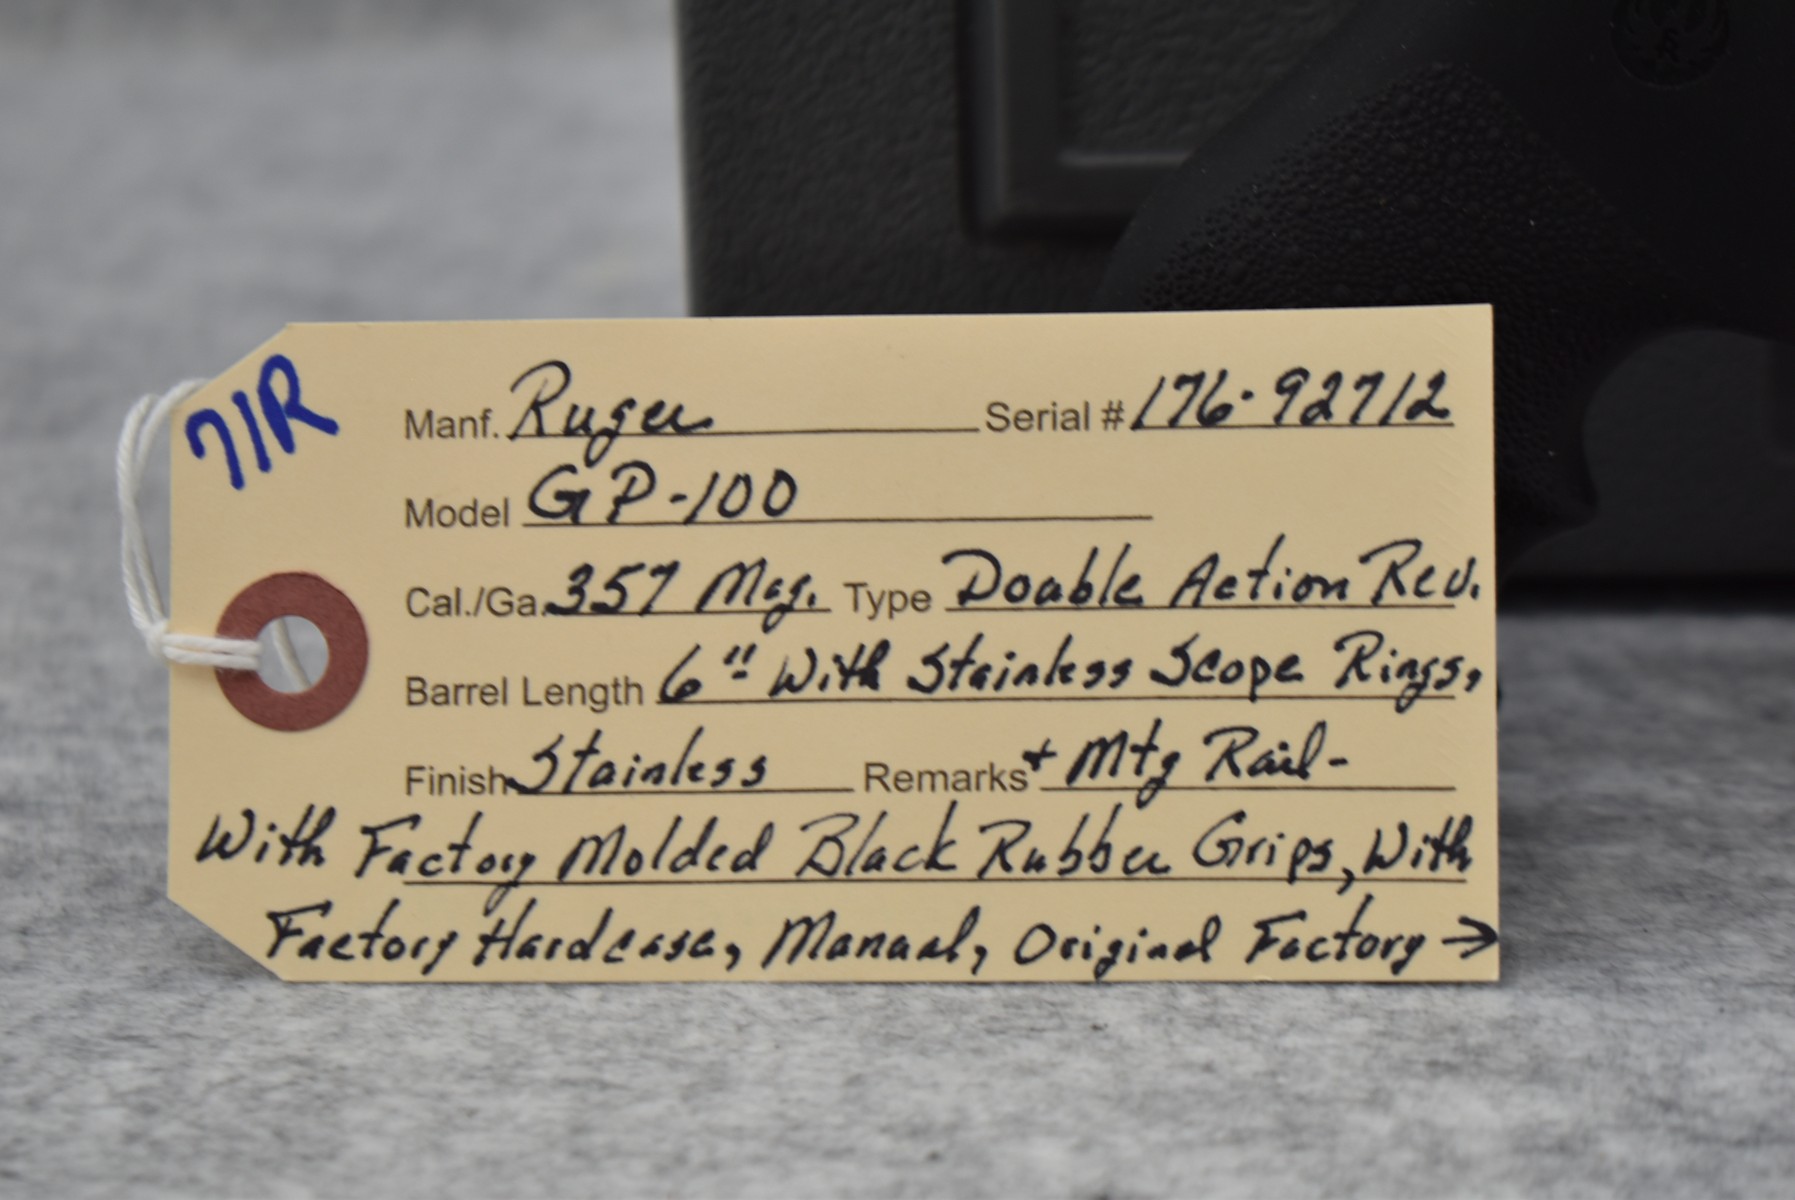 71R
Manf. Ruger Serial # 176-92712
Model GP-100
Cal./Ga. 357 Mag. Type Double Action Rev.
Barrel Length 6" With Stainless Scope Rings,
Finish Stainless Remarks + Mtg Rail-
With Factory Molded Black Rubber Grips, With
Factory Hardcase, Manual, Original Factory →